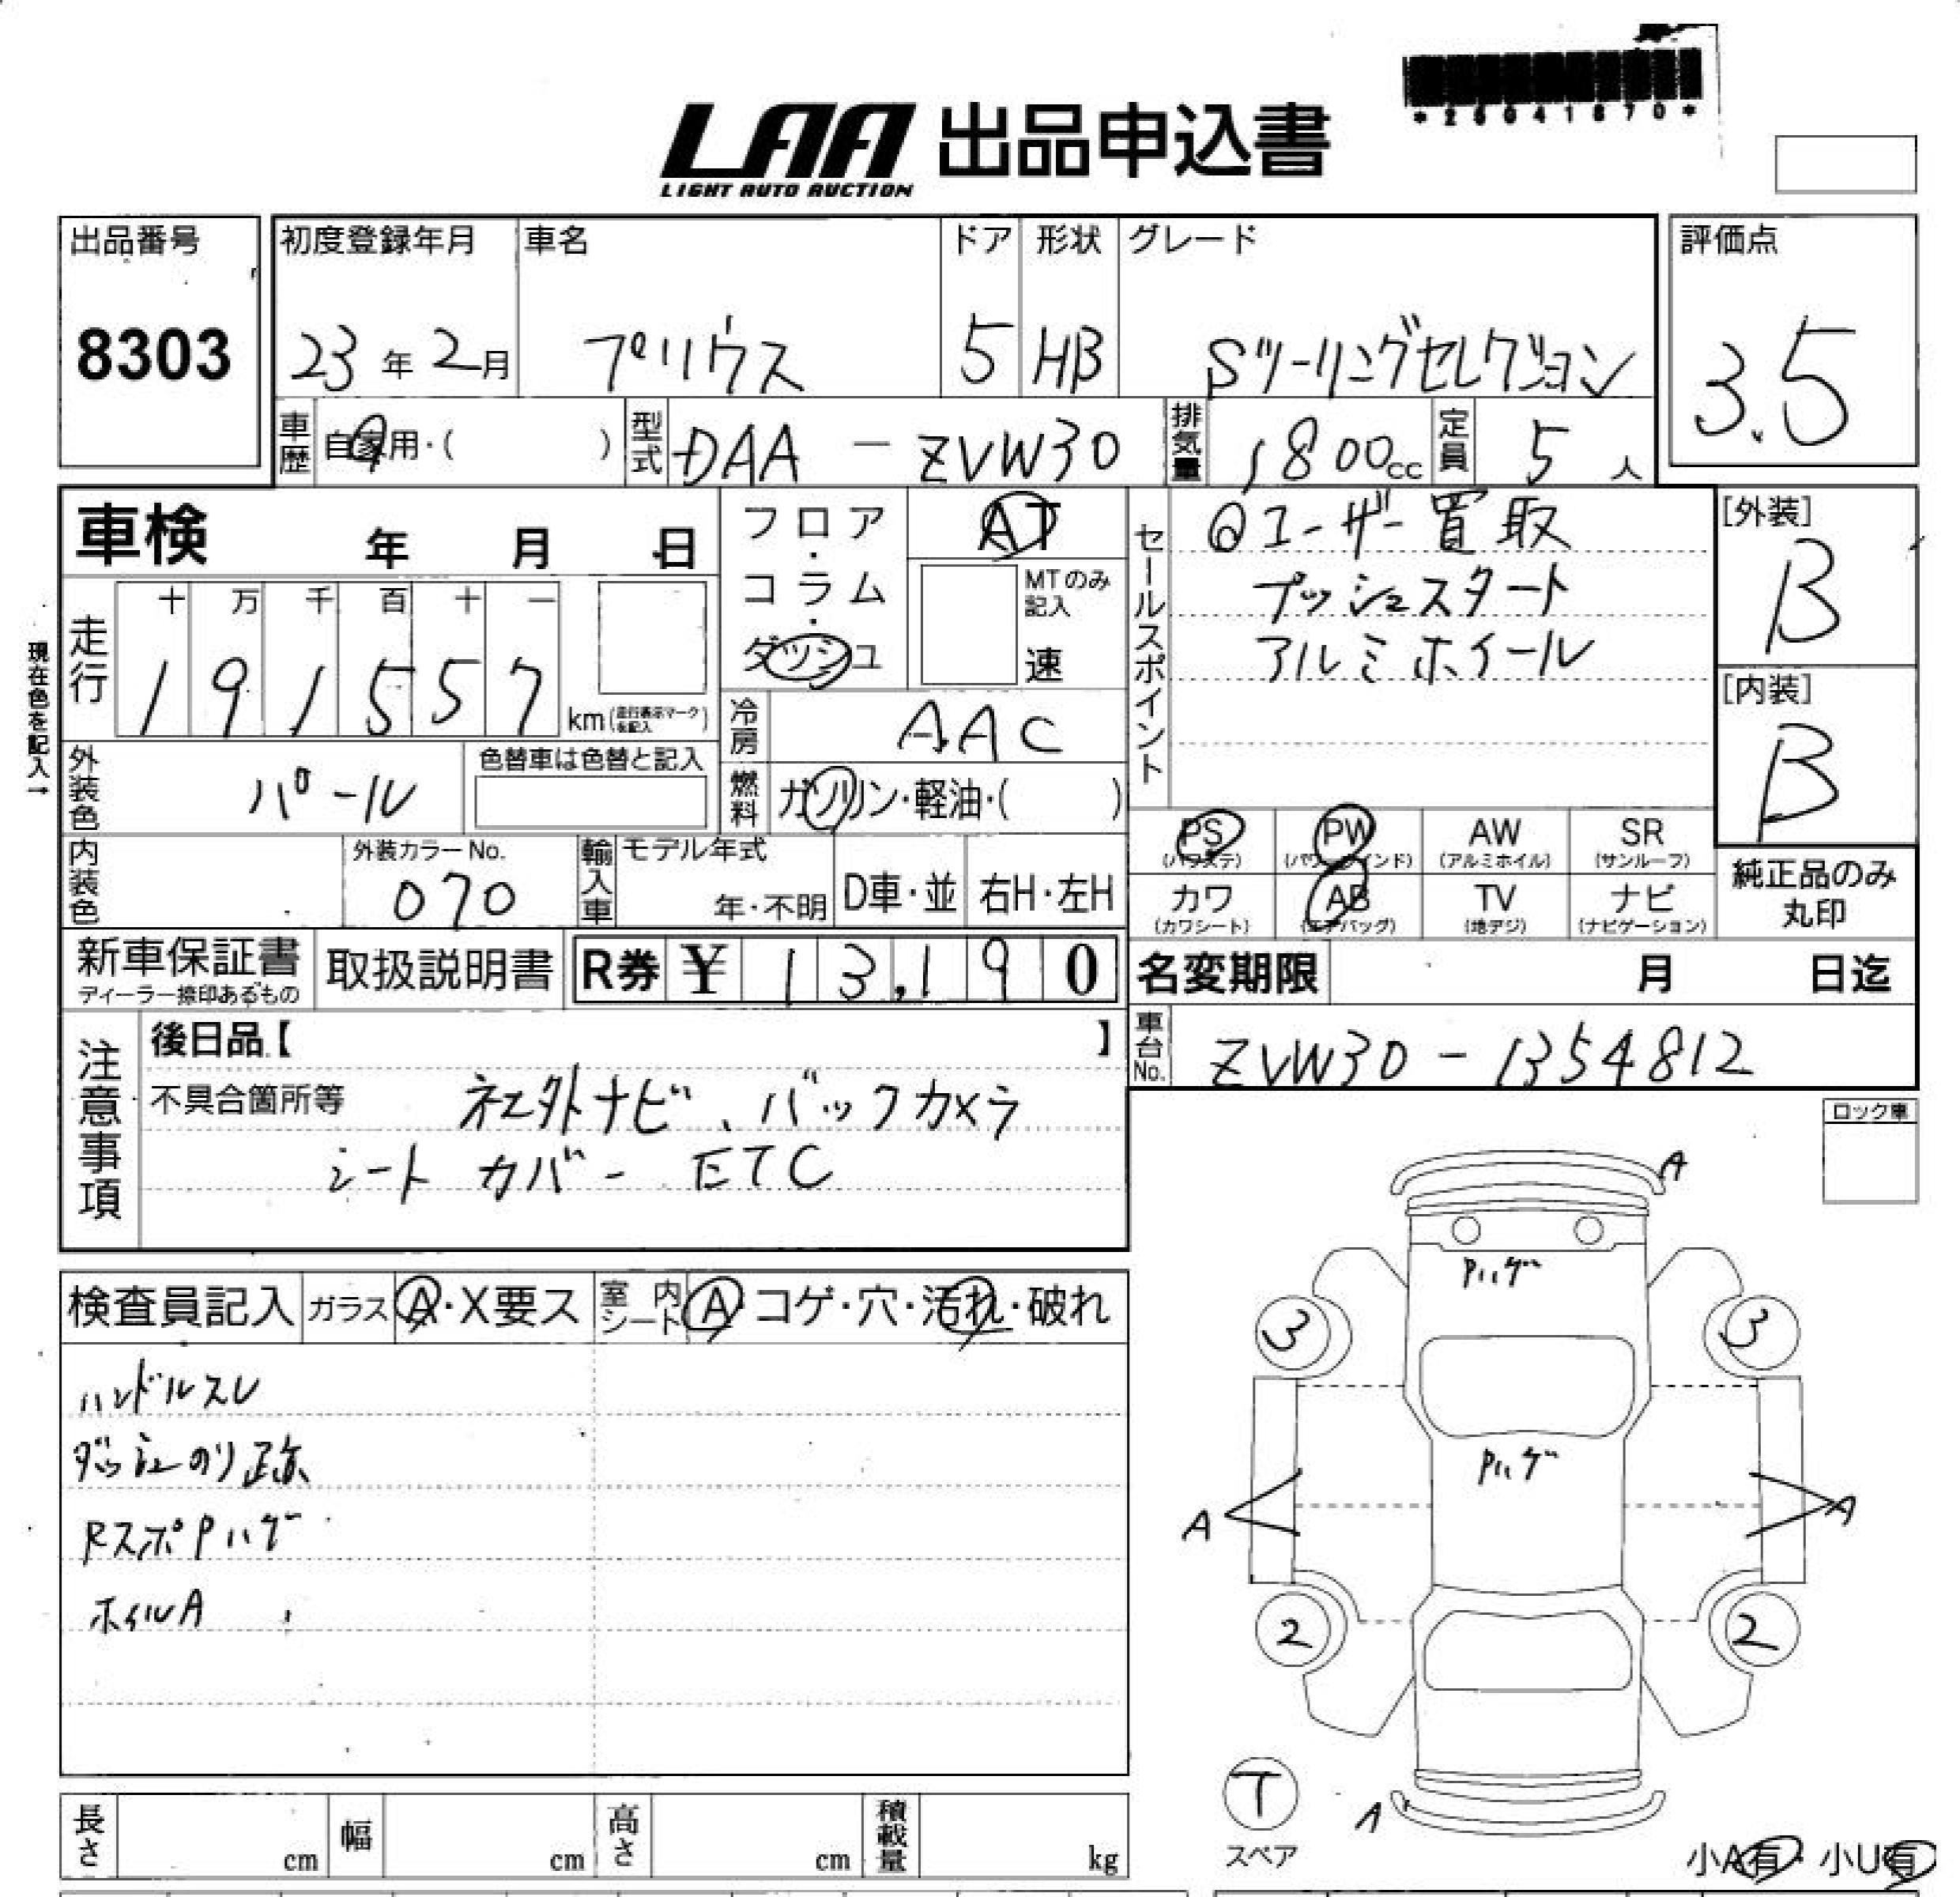 *25041870*
LAA 出品申込書
LIGHT AUTO AUCTION
出品番号
8303
初度登録年月
23年2月
車名
プリウス
ドア
5
形状
HB
グレード
Sツーリングセレクション
評価点
3.5
車歴
自家用・( )
型式
DAA - ZVW30
排気量
1800cc
定員
5人
車検 年 月 日
フロア・コラム・ダッシュ
AT
MTのみ記入
速
セールスポイント
@ユーザー買取
プッシュスタート
アルミホイール
[外装]
B
[内装]
B
現在色を記入→
走行
十 万 千 百 十 一
1 9 1 5 5 7 km(走行表示マークを記入)
冷房
AAC
外装色
パール
色替車は色替と記入
燃料
ガソリン・軽油・( )
PS (パワステ)
PW (パワーウインド)
AW (アルミホイル)
SR (サンルーフ)
カワ (カワシート)
AB (エアバッグ)
TV (地デジ)
ナビ (ナビゲーション)
純正品のみ
丸印
内装色
外装カラーNo.
070
輸入車
モデル年式
年・不明
D車・並
右H・左H
新車保証書
ディーラー捺印あるもの
取扱説明書
R券 ¥ 13,190
名変期限 月 日迄
車台No.
ZVW30 - 1354812
注意事項
後日品【 】
不具合箇所等
社外ナビ、バックカメラ
シートカバー ETC
ロック車
検査員記入
ガラス
A・X要ス
室内シート
A・コゲ・穴・汚れ・破れ
ハンドルスレ
ダッシュのり跡
RスポPハゲ
ホイルA
A
Pハゲ
3
3
Pハゲ
A
A
2
2
T
スペア
A
小A有・小U有
長さ cm
幅 cm
高さ cm
積載量 kg